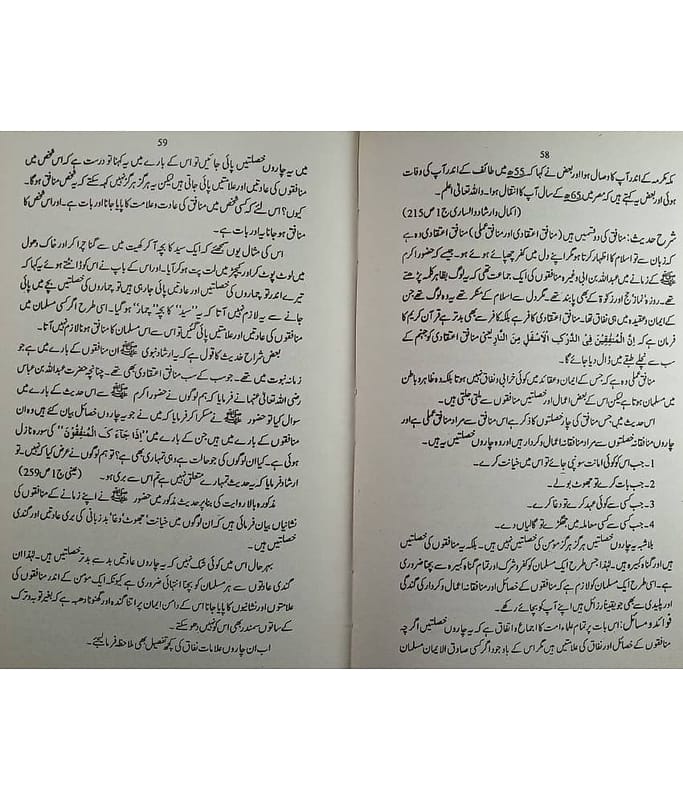 58
مکہ مکرمہ کے اندر آپ کا وصال ہوا اور بعض نے کہا کہ 55ھ میں طائف کے اندر آپ کی وفات
ہوئی اور بعض یہ کہتے ہیں کہ مصر میں 65ھ کے سال آپ کا انتقال ہوا۔ واللہ تعالیٰ اعلم۔
(اکمال وارشاد الساری ج1 ص215)
شرح حدیث: منافق کی دو قسمیں ہیں (منافق اعتقادی اور منافق عملی) منافق اعتقادی وہ ہے
کہ زبان سے تو اسلام کا اظہار کرتا ہو مگر اپنے دل میں کفر چھپائے ہوئے ہو۔ جیسے کہ حضور اکرم
ﷺ کے زمانے میں عبداللہ بن ابی وغیرہ منافقوں کی ایک جماعت تھی کہ یہ لوگ بظاہر کلمہ پڑھتے
تھے۔ روزہ و نماز و حج اور زکوٰۃ کے بھی پابند تھے۔ مگر دل سے اسلام کے منکر تھے یہ وہ لوگ تھے جن
کے ایمان وعقیدہ میں ہی نفاق تھا۔ منافق اعتقادی کافر ہے بلکہ کافر سے بھی بدتر ہے قرآن کریم کا
فرمان ہے کہ اِنَّ الْمُنٰفِقِیْنَ فِی الدَّرْکِ الْاَسْفَلِ مِنَ النَّارِ یعنی منافق اعتقادی کو جہنم کے
سب سے نچلے طبقے میں ڈال دیا جائے گا۔
منافق عملی وہ ہے کہ جس کے ایمان و عقائد میں کوئی خرابی و نفاق نہیں ہوتا بلکہ وہ ظاہر و باطن
میں مسلمان ہوتا ہے لیکن اس کے بعض اعمال اور بعض خصلتیں منافقوں سے ملتی جلتی ہیں۔
اس حدیث میں جس منافق کی چار خصلتوں کا ذکر ہے اس منافق سے مراد منافق عملی ہے اور
چاروں منافقانہ خصلتوں سے مراد منافقانہ اعمال و کردار ہیں اور وہ چاروں خصلتیں یہ ہیں۔
1۔ جب اس کو کوئی امانت سونپی جائے تو اس میں خیانت کرے۔
2۔ جب بات کرے تو جھوٹ بولے۔
3۔ جب کسی سے کوئی عہد کرے تو دغا کرے۔
4۔ جب کسی سے کسی معاملہ میں جھگڑے تو گالیاں دے۔
بلاشبہ یہ چاروں خصلتیں ہرگز ہرگز مؤمن کی خصلتیں نہیں ہیں۔ بلکہ یہ منافقوں کی خصلتیں
ہیں اور گناہ کبیرہ ہیں۔ لہٰذا جس طرح ایک مسلمان کو کفر و شرک اور تمام گناہ کبیرہ سے بچنا ضروری
ہے۔ اسی طرح ایک مسلمان کو لازم ہے کہ منافقوں کے خصائل اور منافقانہ اعمال و کردار کی گندگی
اور پلیدی سے بھی جو یقیناً رذائل ہیں اپنے آپ کو بچائے رکھے۔
فوائد و مسائل: اس بات پر تمام علماء امت کا اجماع و اتفاق ہے کہ یہ چاروں خصلتیں اگرچہ
منافقوں کے خصائل اور نفاق کی علامتیں ہیں مگر اس کے باوجود اگر کسی صادق الایمان مسلمان
59
میں یہ چاروں خصلتیں پائی جائیں تو اس کے بارے میں یہ کہنا تو درست ہے کہ اس شخص میں
منافقوں کی عادتیں اور علامتیں پائی جاتی ہیں لیکن یہ ہرگز ہرگز نہیں کہہ سکتے کہ یہ شخص منافق ہوگا۔
کیوں؟ اس لئے کہ کسی شخص میں منافق کی عادت و علامت کا پایا جانا اور بات ہے۔ اور اس شخص کا
منافق ہو جانا یہ اور بات ہے۔
اس کی مثال یوں سمجھئے کہ ایک سید کا بچہ آکر کھیت میں سے گنا چرا کر اور خاک دھول
میں لوٹ پوٹ کر اور کیچڑ میں لت پت ہو کر آیا۔ اور اس کے باپ نے اس کو ڈانٹتے ہوئے یہ کہا کہ
تیرے اندر تو چماروں کی خصلتیں اور عادتیں پائی جارہی ہیں تو چماروں کی خصلتیں بچے میں پائی
جانے سے یہ لازم نہیں آتا کہ یہ "سید" کا بچہ "چمار" ہو گیا۔ اسی طرح اگر کسی مسلمان میں
منافقوں کی عادتیں اور علامتیں پائی گئیں تو اس سے اس مسلمان کا منافق ہونا لازم نہیں آتا۔
بعض شراح حدیث کا قول ہے کہ یہ ارشاد نبوی ﷺ ان منافقوں کے بارے میں ہے جو
زمانہ نبوت میں تھے۔ جو سب کے سب منافق اعتقادی ہی تھے۔ چنانچہ حضرت عبداللہ بن عباس
رضی اللہ تعالیٰ عنہما نے فرمایا کہ ہم لوگوں نے حضور اکرم ﷺ سے اس حدیث کے بارے میں
سوال کیا تو حضور ﷺ نے مسکرا کر فرمایا کہ میں نے جو یہ چاروں خصائل بیان کئے ہیں وہ ان
منافقوں کے بارے میں ہیں جن کے بارے میں "اِذَا جَآءَکَ الْمُنٰفِقُوْنَ" کی سورہ نازل
ہوئی ہے۔ کیا ان لوگوں کی جو حالت ہے وہی تمہاری بھی ہے؟ تو ہم لوگوں نے عرض کیا کہ نہیں۔ تو
ارشاد فرمایا کہ یہ حدیث تمہارے متعلق نہیں ہے تم اس سے بری ہو۔ (عینی ج1 ص259)
مذکورہ بالا روایت کی بنا پر حدیث مذکور میں حضور ﷺ نے اپنے زمانے کے منافقوں کی
نشانیاں بیان فرمائی ہیں کہ ان لوگوں میں خیانت، جھوٹ، دغا، بدزبانی کی بری عادتیں اور گندی
خصلتیں ہیں۔
بہرحال اس میں کوئی شک نہیں کہ یہ چاروں عادتیں بد سے بدتر خصلتیں ہیں۔ لہٰذا ان
گندی عادتوں سے ہر مسلمان کو بچنا انتہائی ضروری ہے کیونکہ ایک مؤمن کے اندر منافقوں کی
علامتوں اور نشانیوں کا پایا جانا اس کے دامن ایمان پر اتنا گندہ اور گھنونا دھبہ ہے کہ بغیر توبہ و ترک
کے ساتوں سمندر بھی اس کو نہیں دھو سکتے۔
اب ان چاروں علامات نفاق کی کچھ تفصیل بھی ملاحظہ فرمالیجئے۔